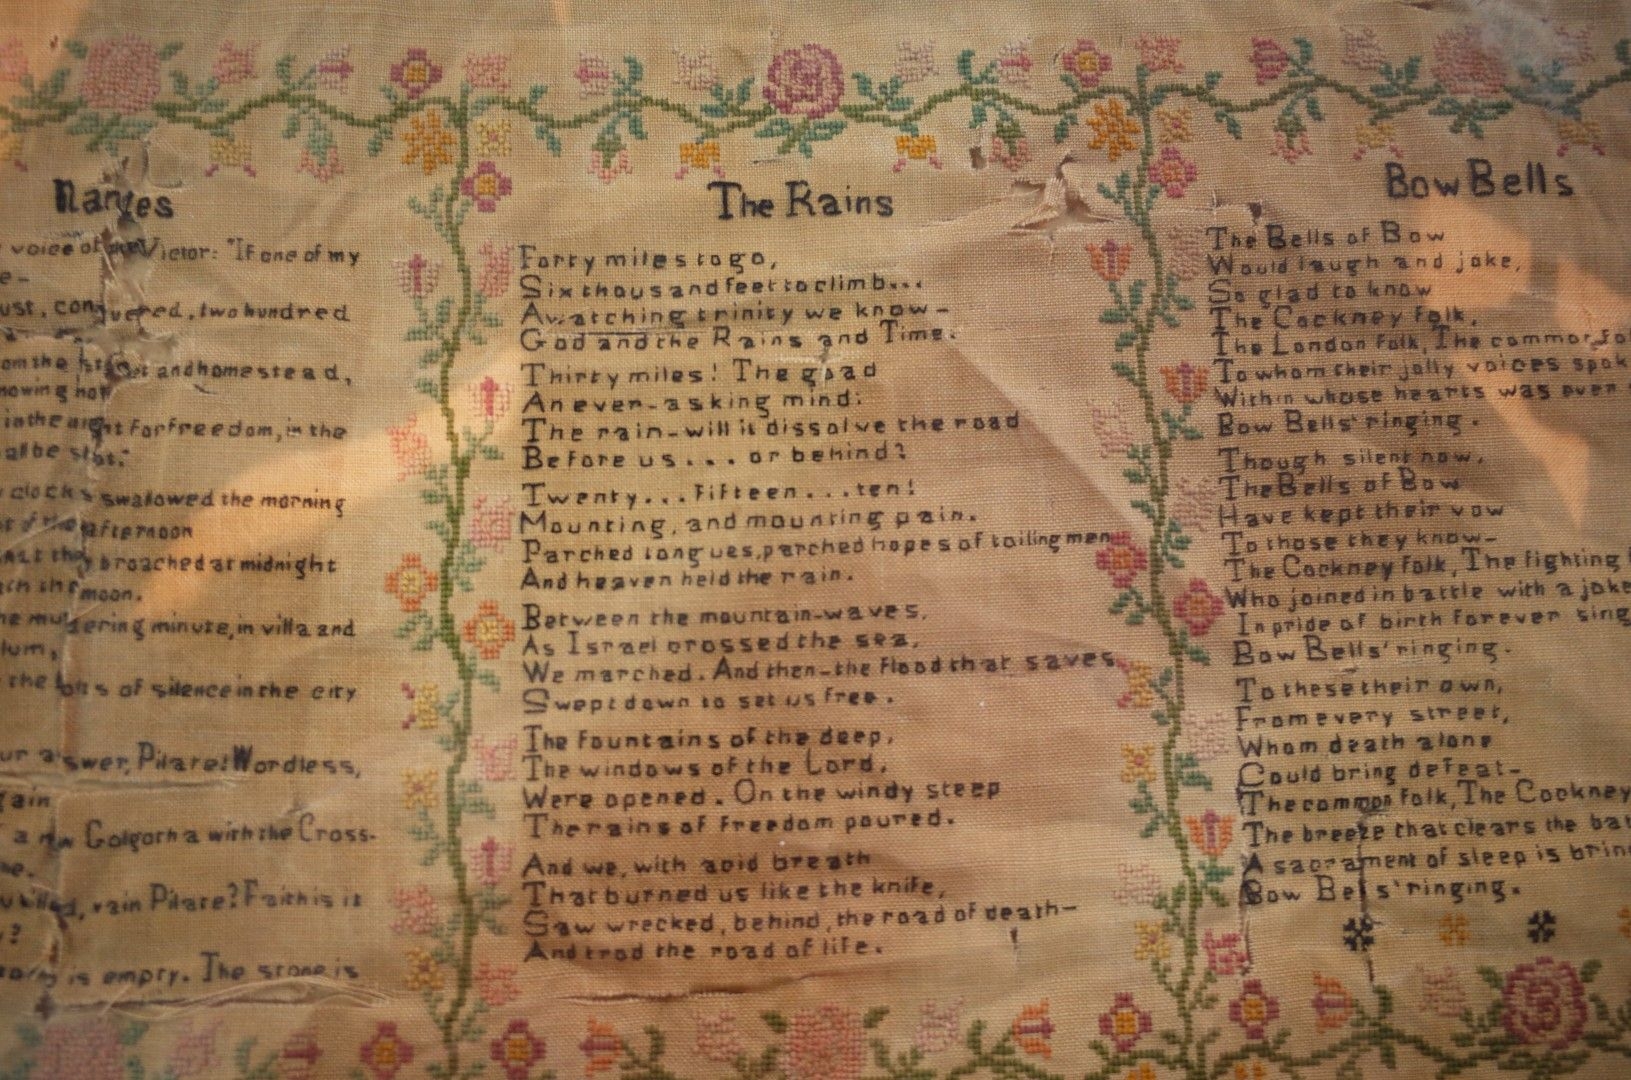 Nantes
voice of the Victor: "If one of my
conquered, two hundred
and homestead,
in the night for freedom, in the
clocks swallowed the morning
of the afternoon
they broached at midnight
moon.
minute, in villa and
the of silence in the city
answer, Pilate! Wordless,
a new Golgotha with the Cross-
killed, vain Pilate? Faith is it
is empty. The stone is
The Rains
Forty miles to go,
Six thousand feet to climb...
A watching trinity we know-
God and the Rains and Time.
Thirty miles! The goad
An ever-asking mind:
The rain-will it dissolve the road
Before us... or behind?
Twenty... Fifteen... ten!
Mounting, and mounting pain.
Parched tongues, parched hopes of toiling men
And heaven held the rain.
Between the mountain-waves,
As Israel crossed the sea,
We marched. And then-the flood that saves
Swept down to set us free.
The fountains of the deep,
The windows of the Lord,
Were opened. On the windy steep
The rains of freedom poured.
And we, with acid breath
That burned us like the knife,
Saw wrecked, behind, the road of death-
And trod the road of life.
Bow Bells
The Bells of Bow
Would laugh and joke,
So glad to know
The Cockney Folk,
The London Folk, The common
To whom their jolly voices
Within whose hearts was ever
Bow Bells' ringing.
Though silent now,
The Bells of Bow
Have kept their vow
To those they know-
The Cockney Folk, The fighting
Who joined in battle with a joke
In pride of birth forever
Bow Bells' ringing.
To these their own,
From every street,
Whom death alone
Could bring defeat-
The common folk, The Cockney
The breeze that clears the
A sacrament of sleep is
Bow Bells' ringing.